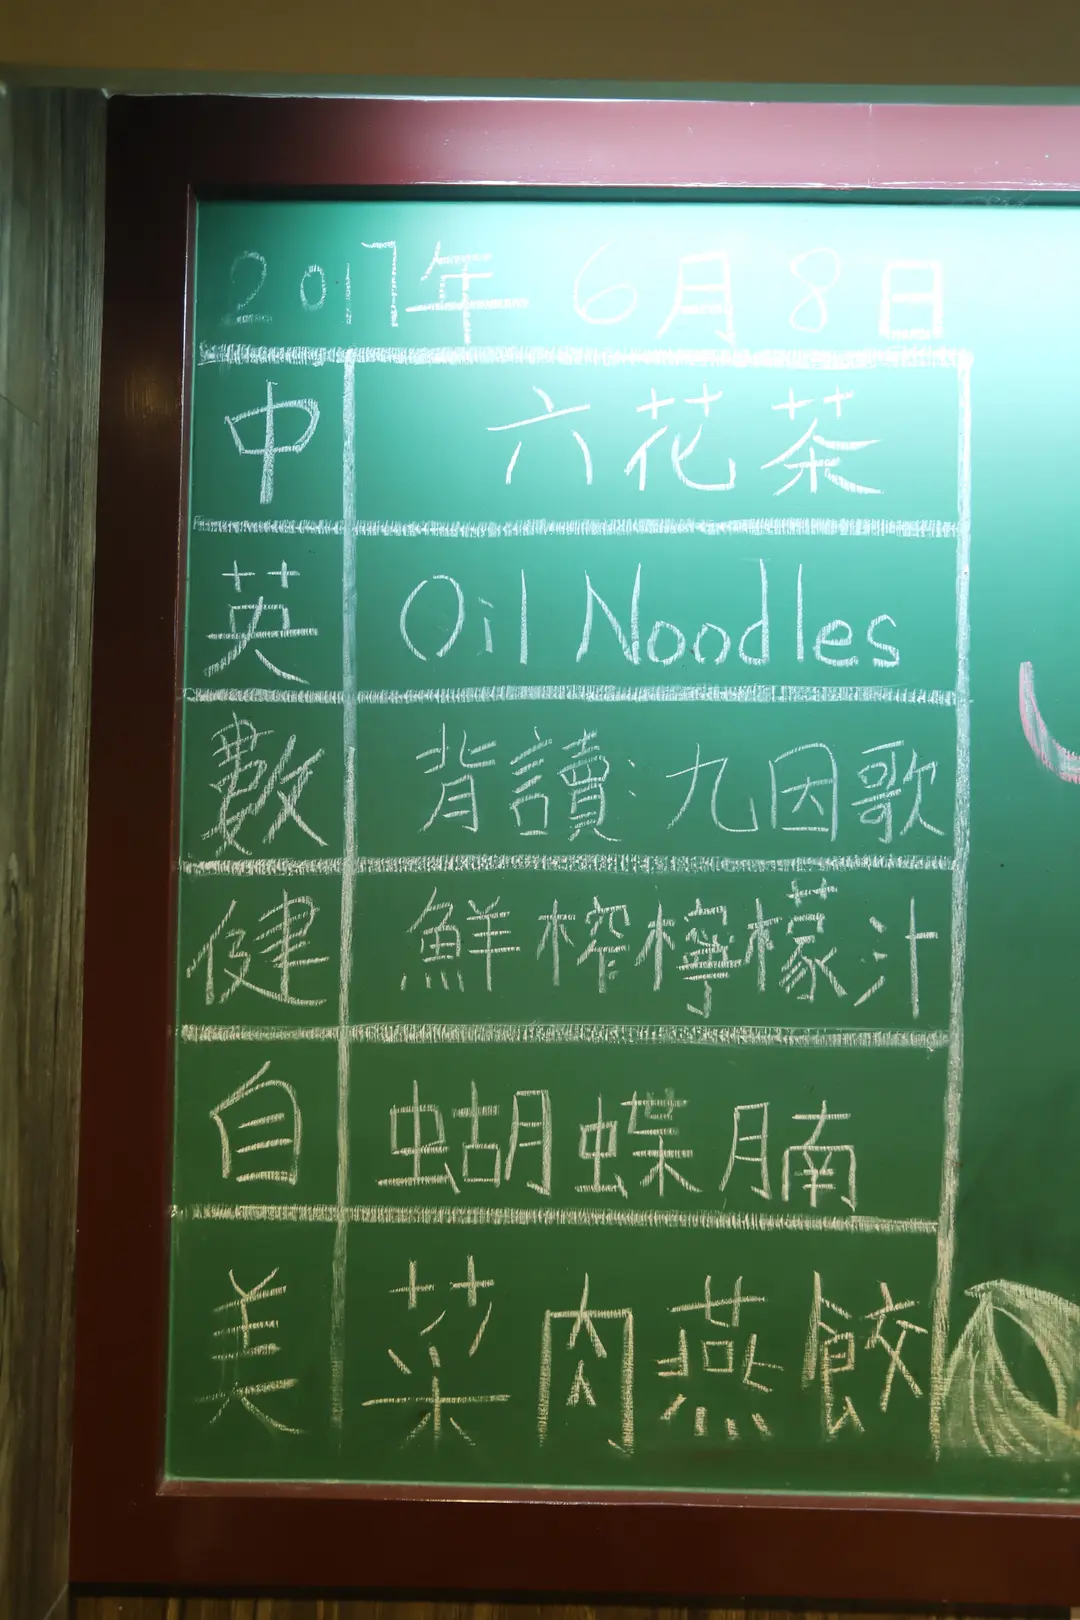 2017年 6月8日
中 六花茶
英 Oil Noodles
數 背讀:九因歌
健 鮮榨檸檬汁
自 蝴蝶腩
美 菜肉燕餃